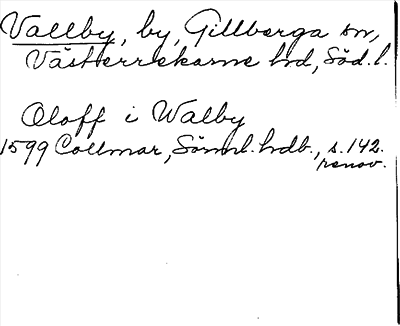 Vallby, by, Gillberga sn,
Västerrekarne hd, Söd. l.
Oloff i Walby
1599 Collmar, Sörml. hdb., s. 142.
renov.